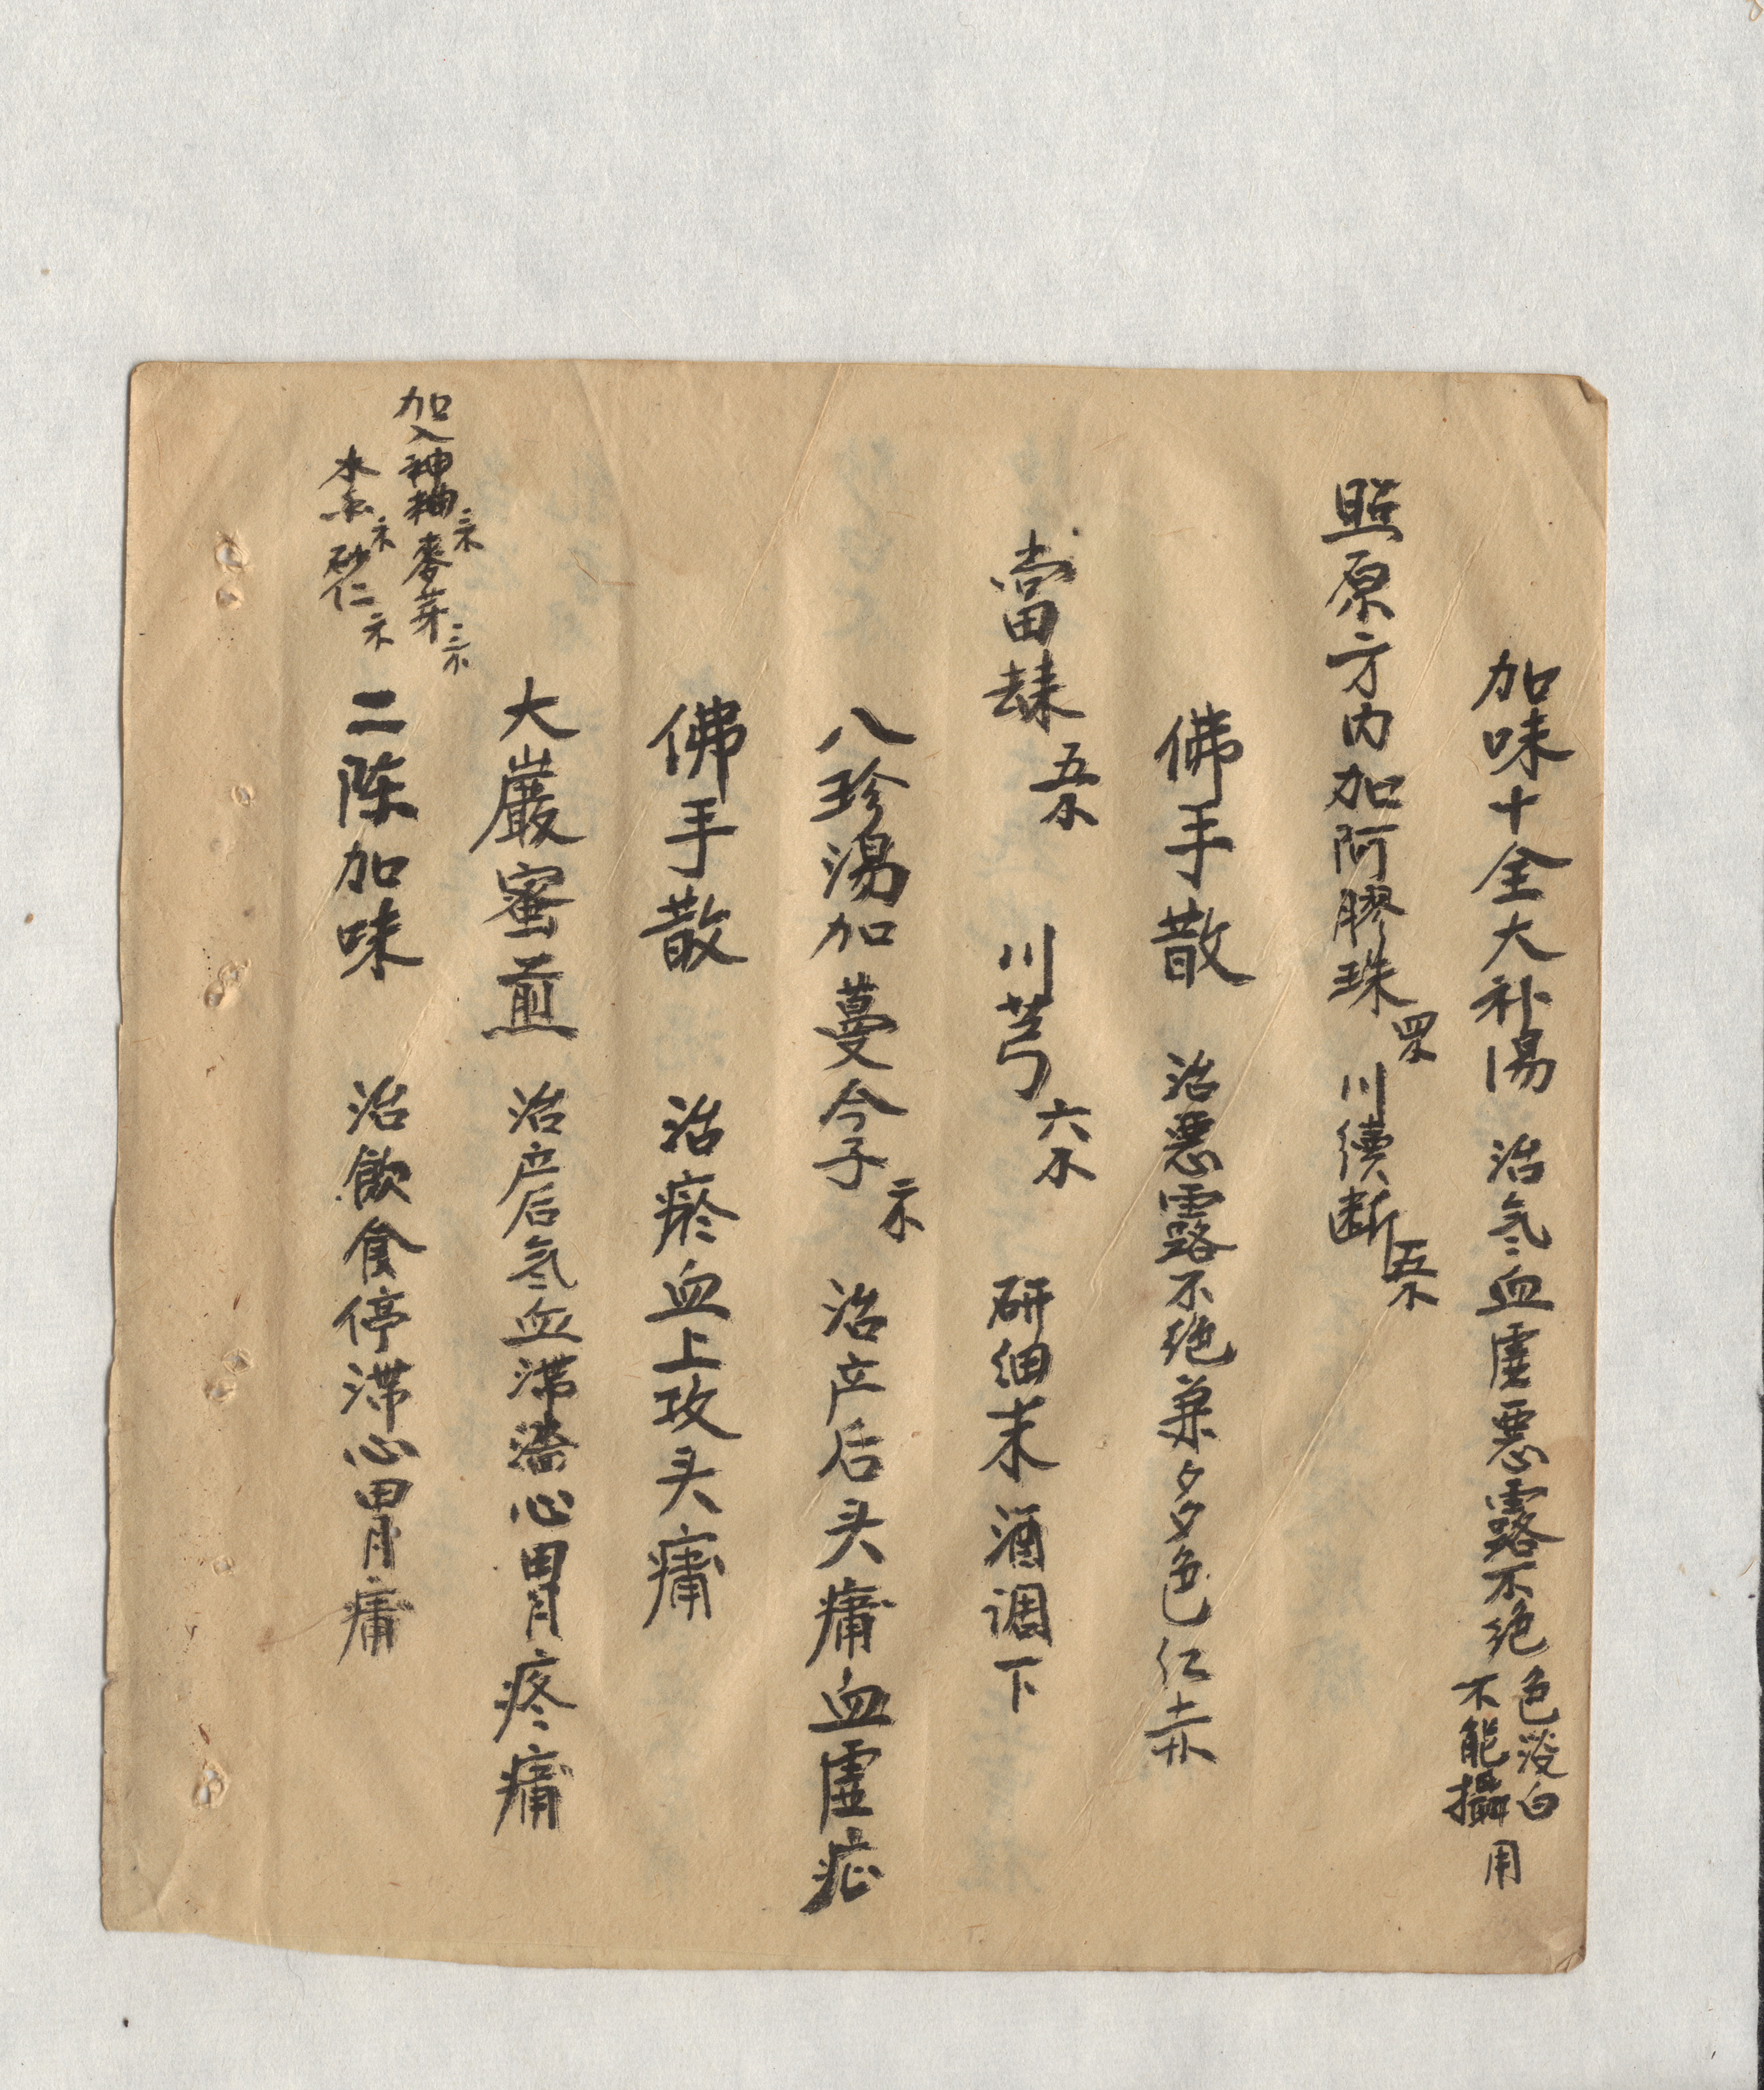 加味十全大补湯 治気血虚悪露不绝 色淡白不能攝用
照原方内加阿膠珠 川續断
佛手散 治悪露不绝兼多色红赤
當 川芎 六 研细末酒调下
八珍湯加蔓今子 治产后头痛血虚症
佛手散 治瘀血上攻头痛
大巖蜜煎 治产后気血滞 心胃疼痛
加入神 麥芽
木 砂仁
二陈加味 治飲食停滞心胃痛